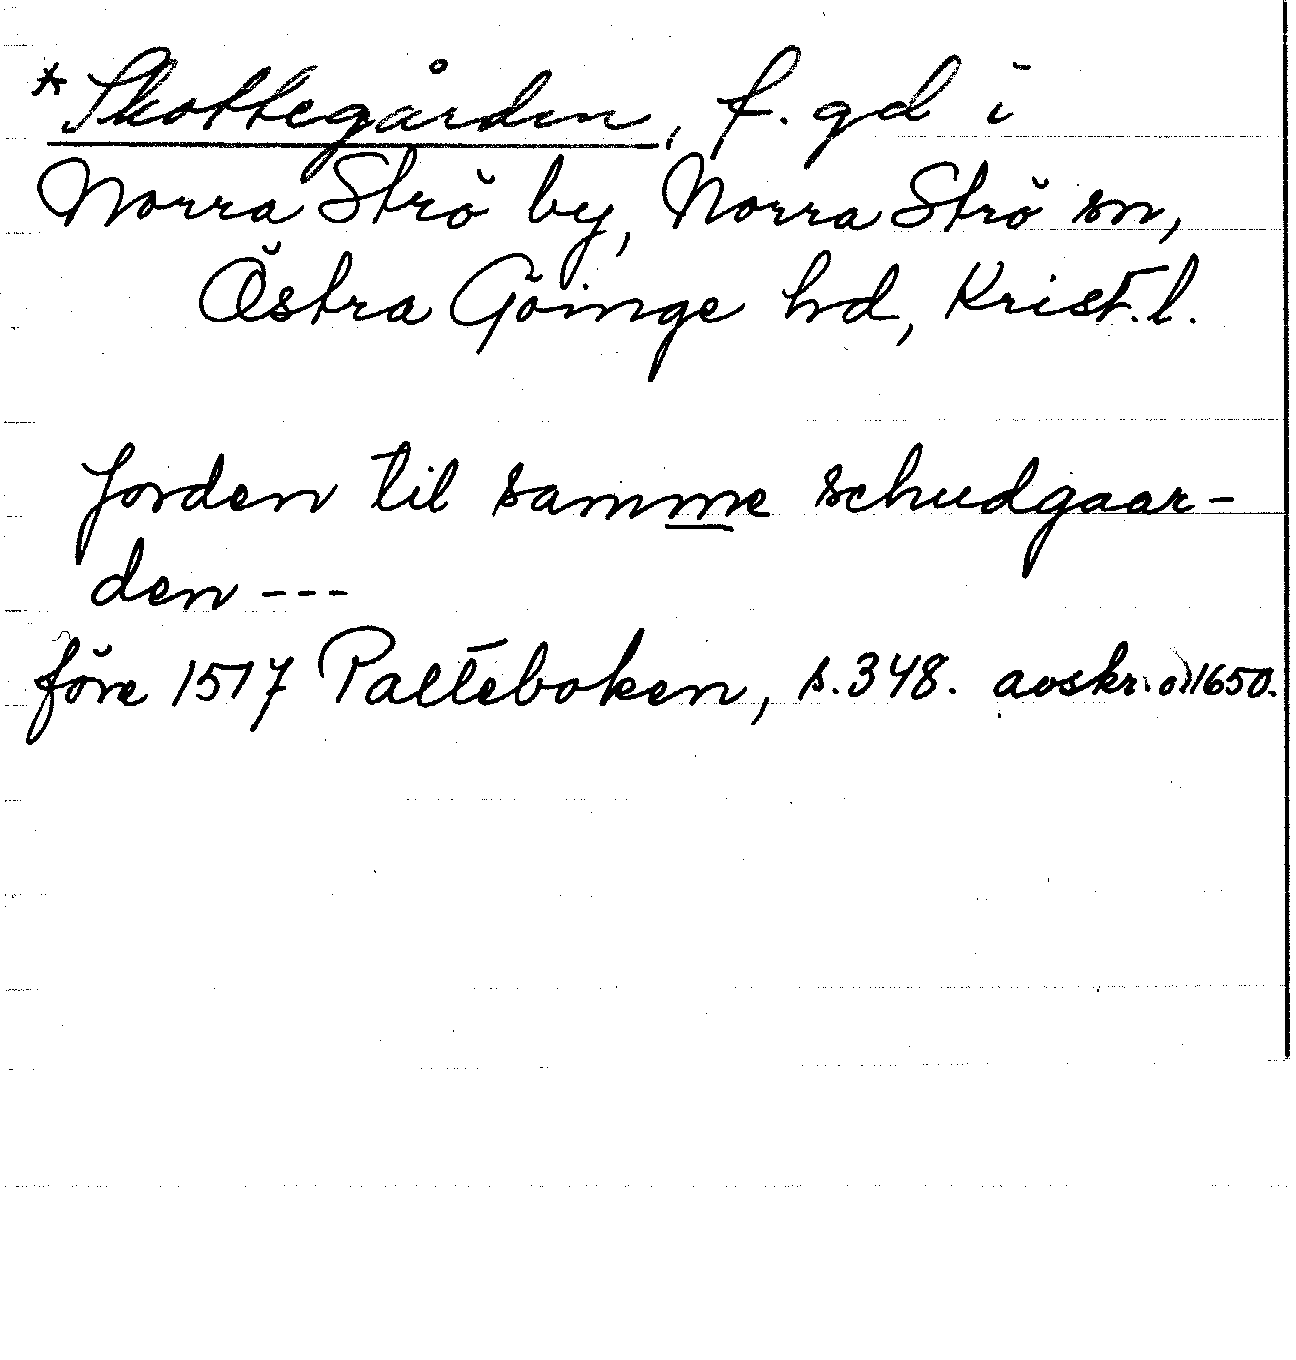 *Skottegården, f. gd i
Norra Strö by, Norra Strö sn,
Östra Göinge hd, Krist. l.
Jorden til samme schudgaar-
den ---
före 1517 Palteboken, s. 348. avskr. o. 1650.